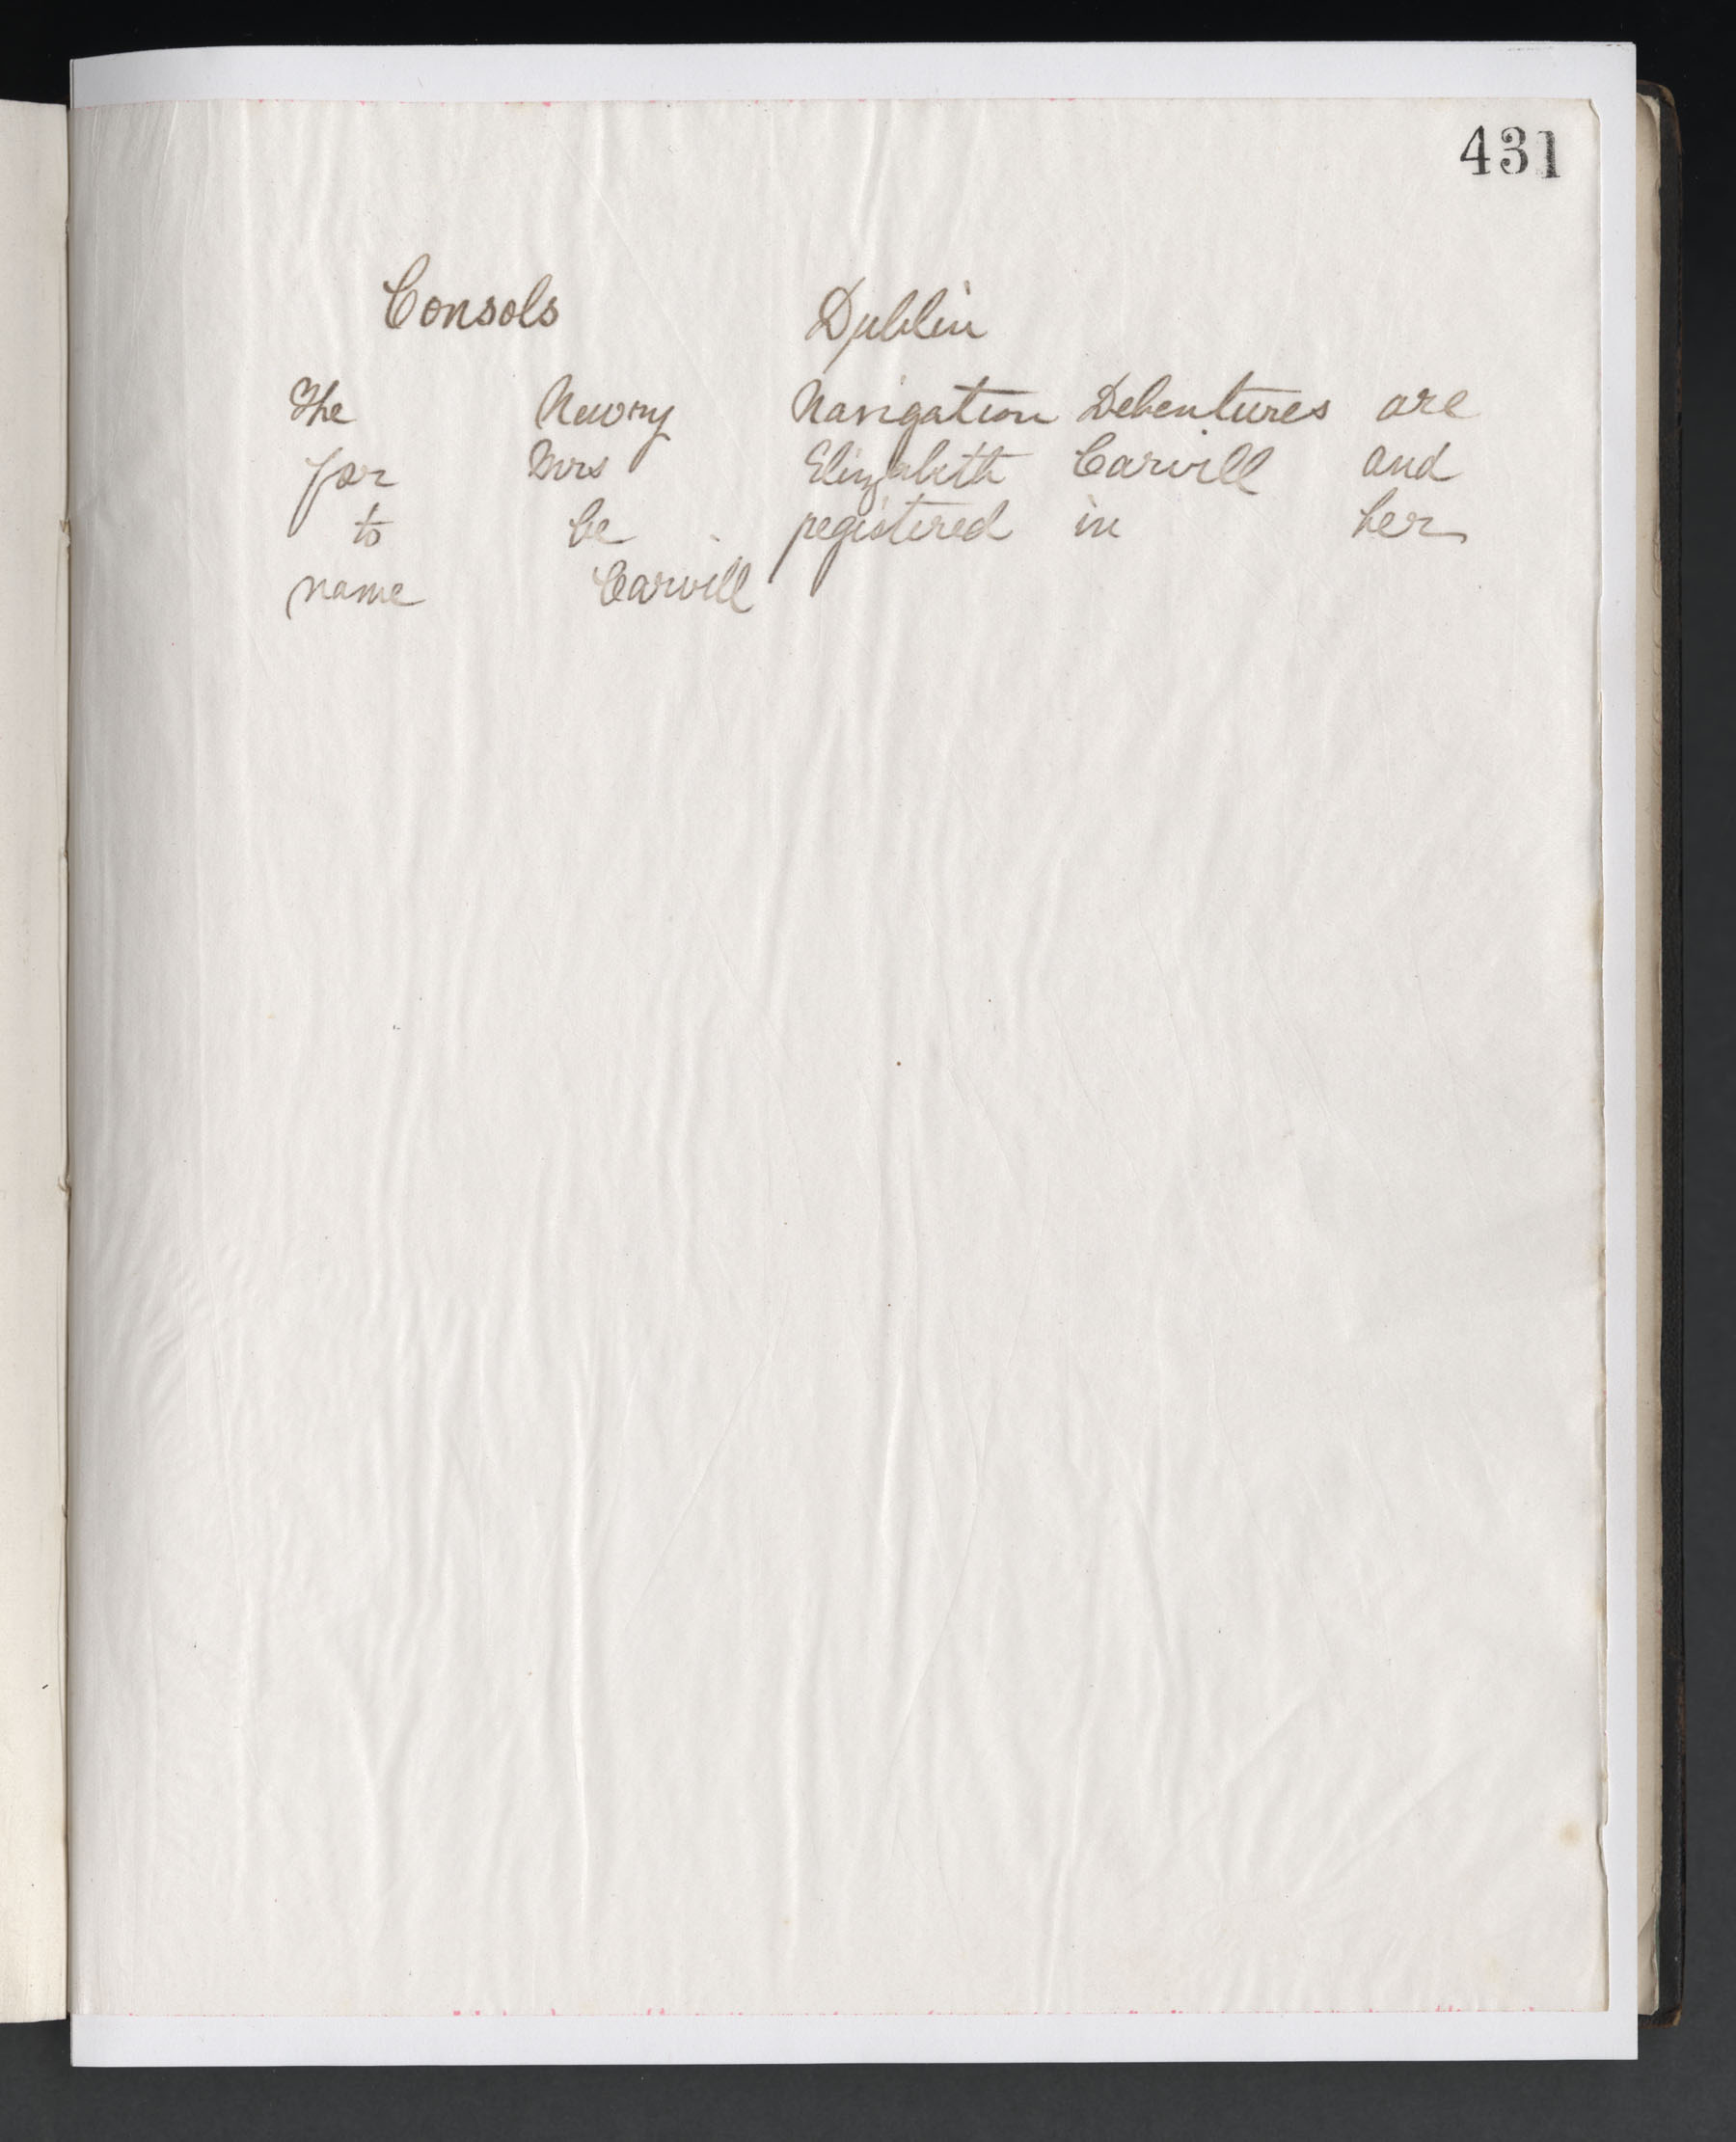 431
Consols Dublin
The Newry Navigation Debentures are
for Mrs Elizabeth Carvill and
to be registered in her
name Carvill